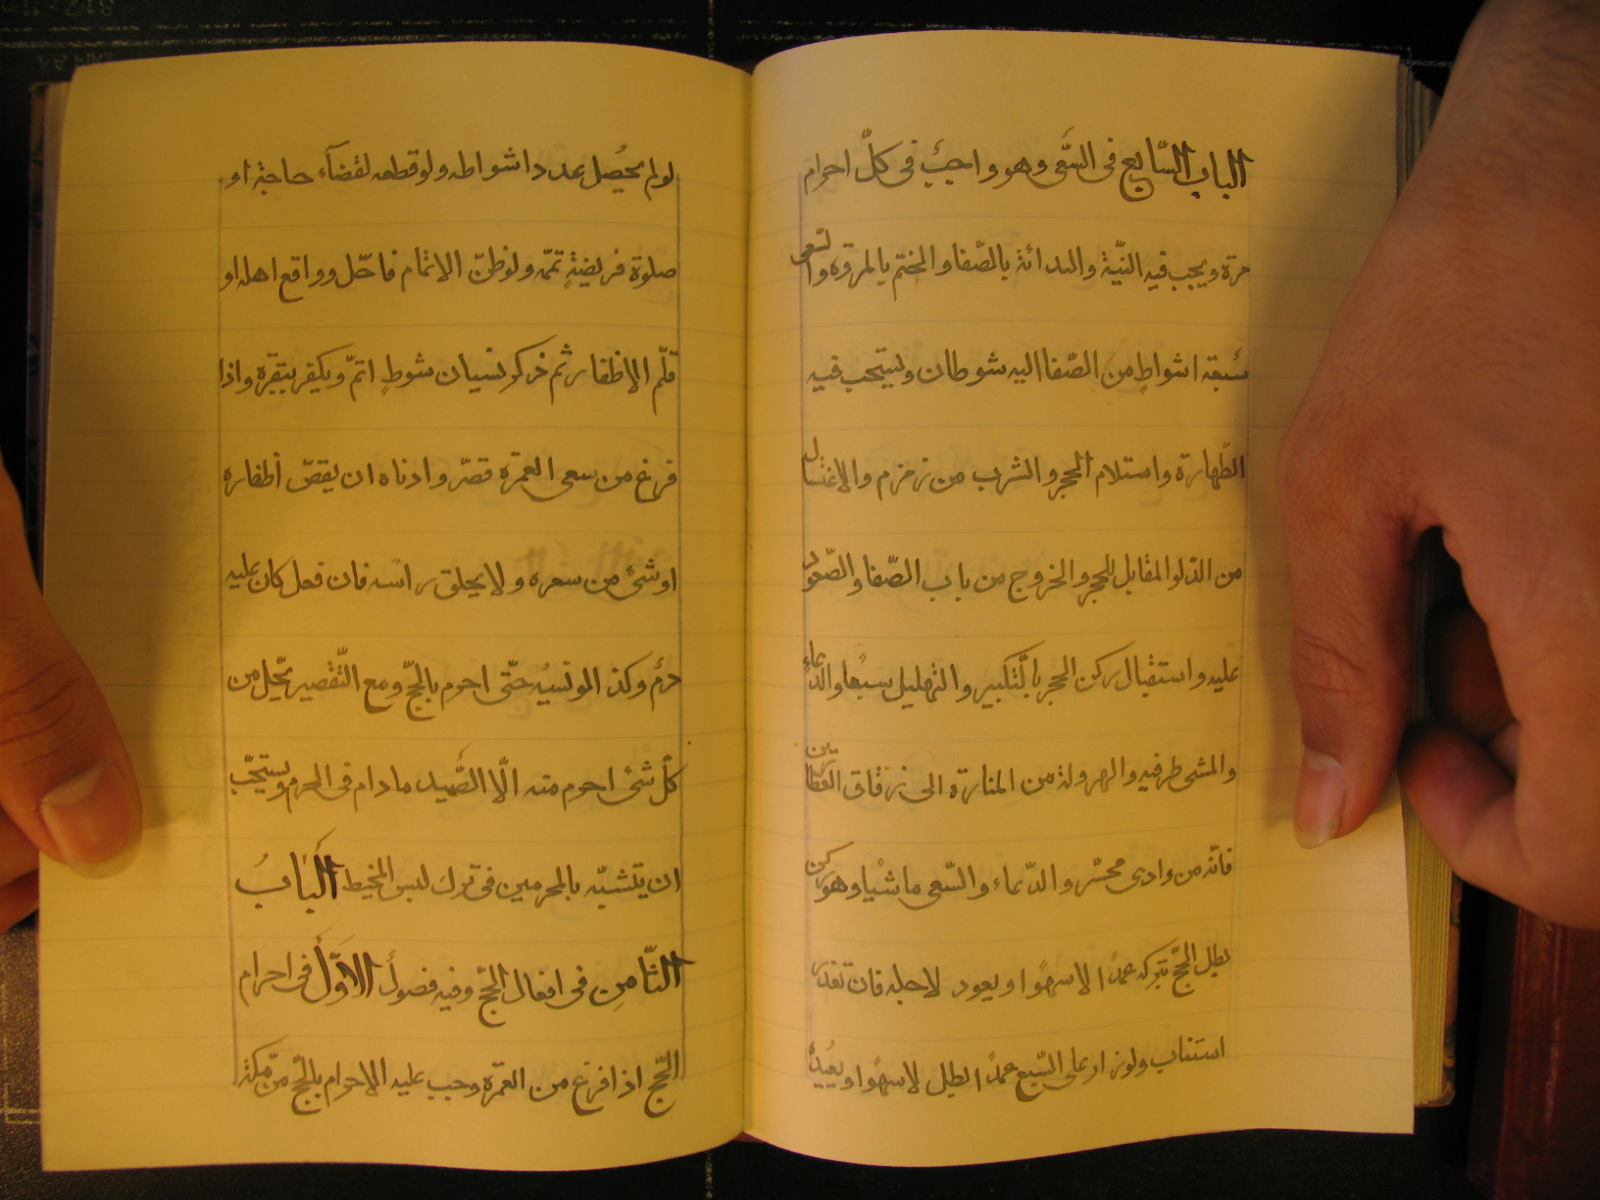 الباب السّابع فى السّعى وهو واجبٌ فى كلّ احرام
مرة ويجب فيه النيّة والبدائة بالصّفا والختم بالمروة والسّعى
سبعة اشواطٍ من الصّفا اليه شوطان ويستحب فيه
الطّهارة واستلام الحجر والشرب من زمزم والاغتسال
من الدّلو المقابل للحجر والخروج من باب الصّفا والصّعود
عليه واستقبال ركن الحجر بالتّكبير والتهليل سبعًا والدّعاء
والمشى طرفيه والهرولة من المنارة الى زقاق العطّارين
فانّه من وادى محسّر والدّعاء والسّعى ماشيًا وهو ركن
يطل الحجّ بتركه عمدًا لا سهوًا ويعود لاجله فان تعذر
استناب ولو زاد على السّبع عمدًا بطل لا سهوًا ويعيد
لو لم يحصل عدد اشواطه ولو قطعه لقضآء حاجة او
صلوة فريضةٍ تممّه ولو ظنّ الاتمام فاحّل وواقع اهله او
قلّم الاظفار ثم ذكر نسيان شوطٍ اتمّ ويكفر ببقرة واذا
فرغ من سعى العمرة قصّر وادناه ان يقصّ اظفاره
او شئ من شعره ولا يحلق راسه فان فعل كان عليه
دمٌ وكذا لو نسيه حتّى احرم بالحجّ ومع التّقصير يحّل من
كلّ شئ احرم منه الّا الصّيد ما دام فى الحرم ويستحّب
ان يتشبّه بالمحرمين فى ترك لبس المخيط الباب
الثّامن فى افعال الحجّ وفيه فصول الاوّل فى احرام
الحّج اذا فرغ من العمرة وجب عليه الاحرام بالحّج من مكّة